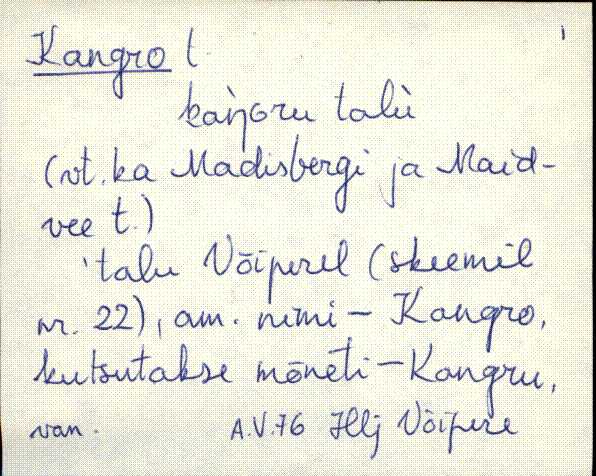 Kangro t.
kaŋŋoru talù
(vt. ka Madisbergi ja Maid-
vee t.)
'talu Võiperel (skeemil
nr. 22), am. nimi – Kangro,
kutsutakse mõneti – Kangru,
van. A.V.76 Hlj Võipere